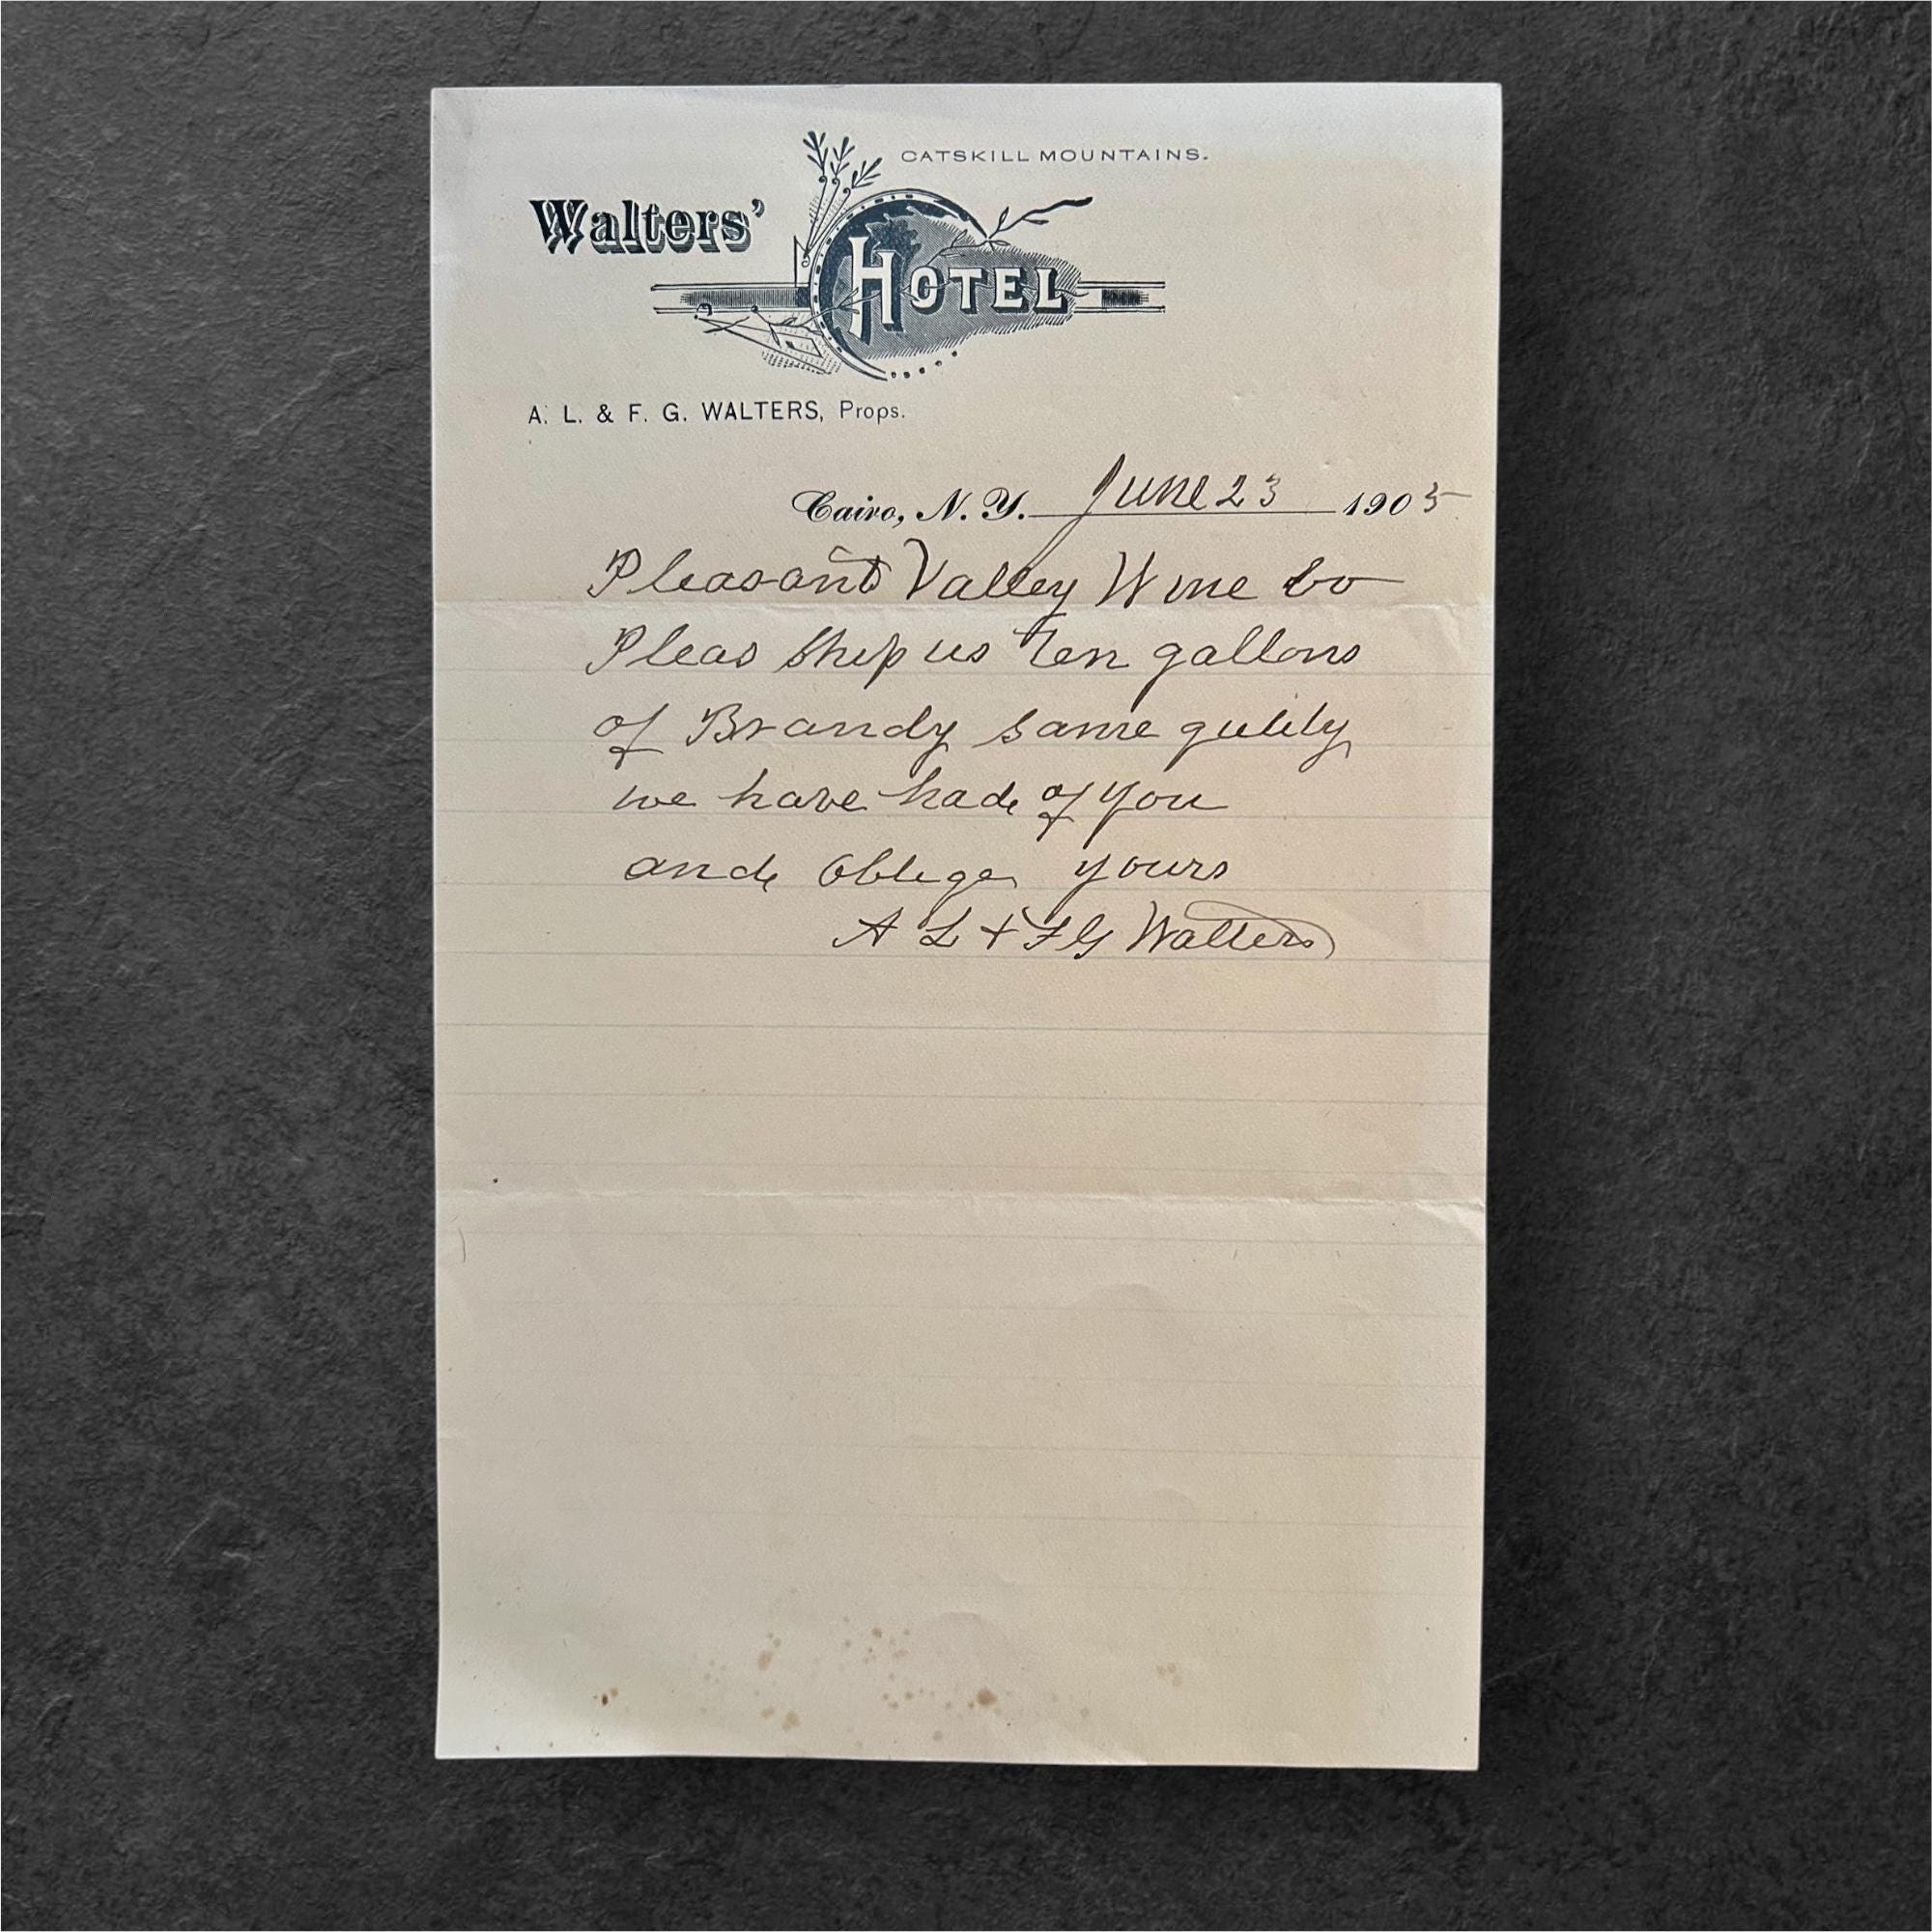 CATSKILL MOUNTAINS.
Walters'
HOTEL
A. L. & F. G. WALTERS, Props.
Cairo, N. Y. June 23 1905
Pleasant Valley Wine Co
Pleas Ship us Ten gallons
of Brandy same qulity
we have had of you
and oblige yours
A L & F G Walters